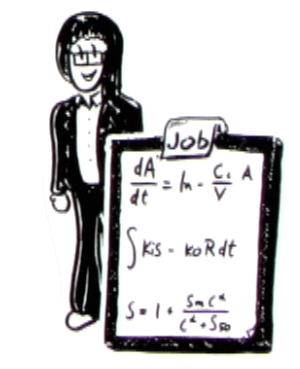 Job
dA/dt = In - C₁/V A
∫ Kis - koR dt
S = 1 + Smc^α/c^α+S₅₀